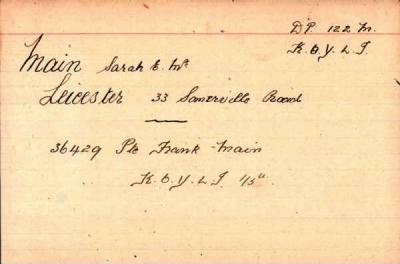 D.P. 122 M.
K.O.Y.L.I.
Main Sarah E. Mrs
Leicester 33 Somerville Road
36429 Pte Frank Main
K.O.Y.L.I 1/5th